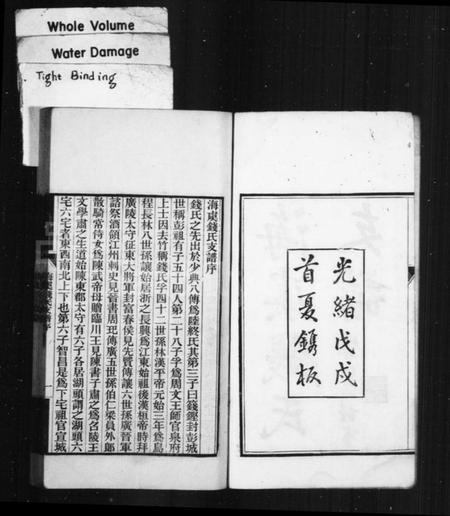 Whole Volume
Water Damage
Tight Binding
光緒戊戌
首夏鐫板
海虞錢氏支譜序
錢氏之先出於少典八傳為陸終氏其第三子曰籛鏗封彭城
世稱彭祖有子五十四人第二十八子孚為周文王師官泉府
上士因去竹稱錢氏孚四十二世孫林漢平帝元始三年為烏
程長林八世孫讓始居浙之長興為江東始祖後漢桓帝時拜
廣陵太守征東大將軍封富春侯見先賢傳讓六世孫廣晉軍
諮祭酒領江州刺史見晉書周玘傳廣五世孫伯仁梁員外郎
散騎常侍女為陳武帝母贈臨川王見陳書子肅之為名陵王
文學肅之生道始陳東郡太守有六子各居湖頭謂之湖頭六
宅六宅者東西南北上下也第六子智昌是為下宅祖官宣城